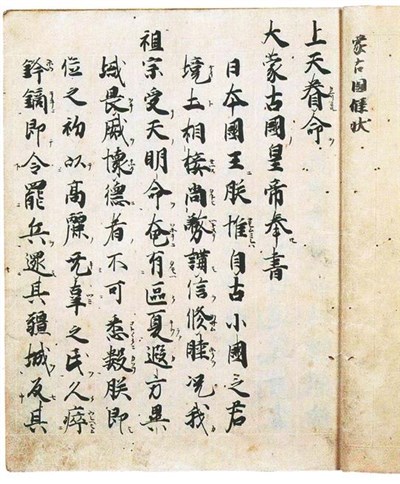 蒙古國牒状
上天眷命
大蒙古國皇帝奉書
日本國王朕惟自古小國之君
境土相接尚務講信修睦况我
祖宗受天明命奄有區夏遐方異
域畏威懐德者不可悉數朕即
位之初以高麗无辜之民久瘁
鋒鏑即令罷兵還其疆城反其